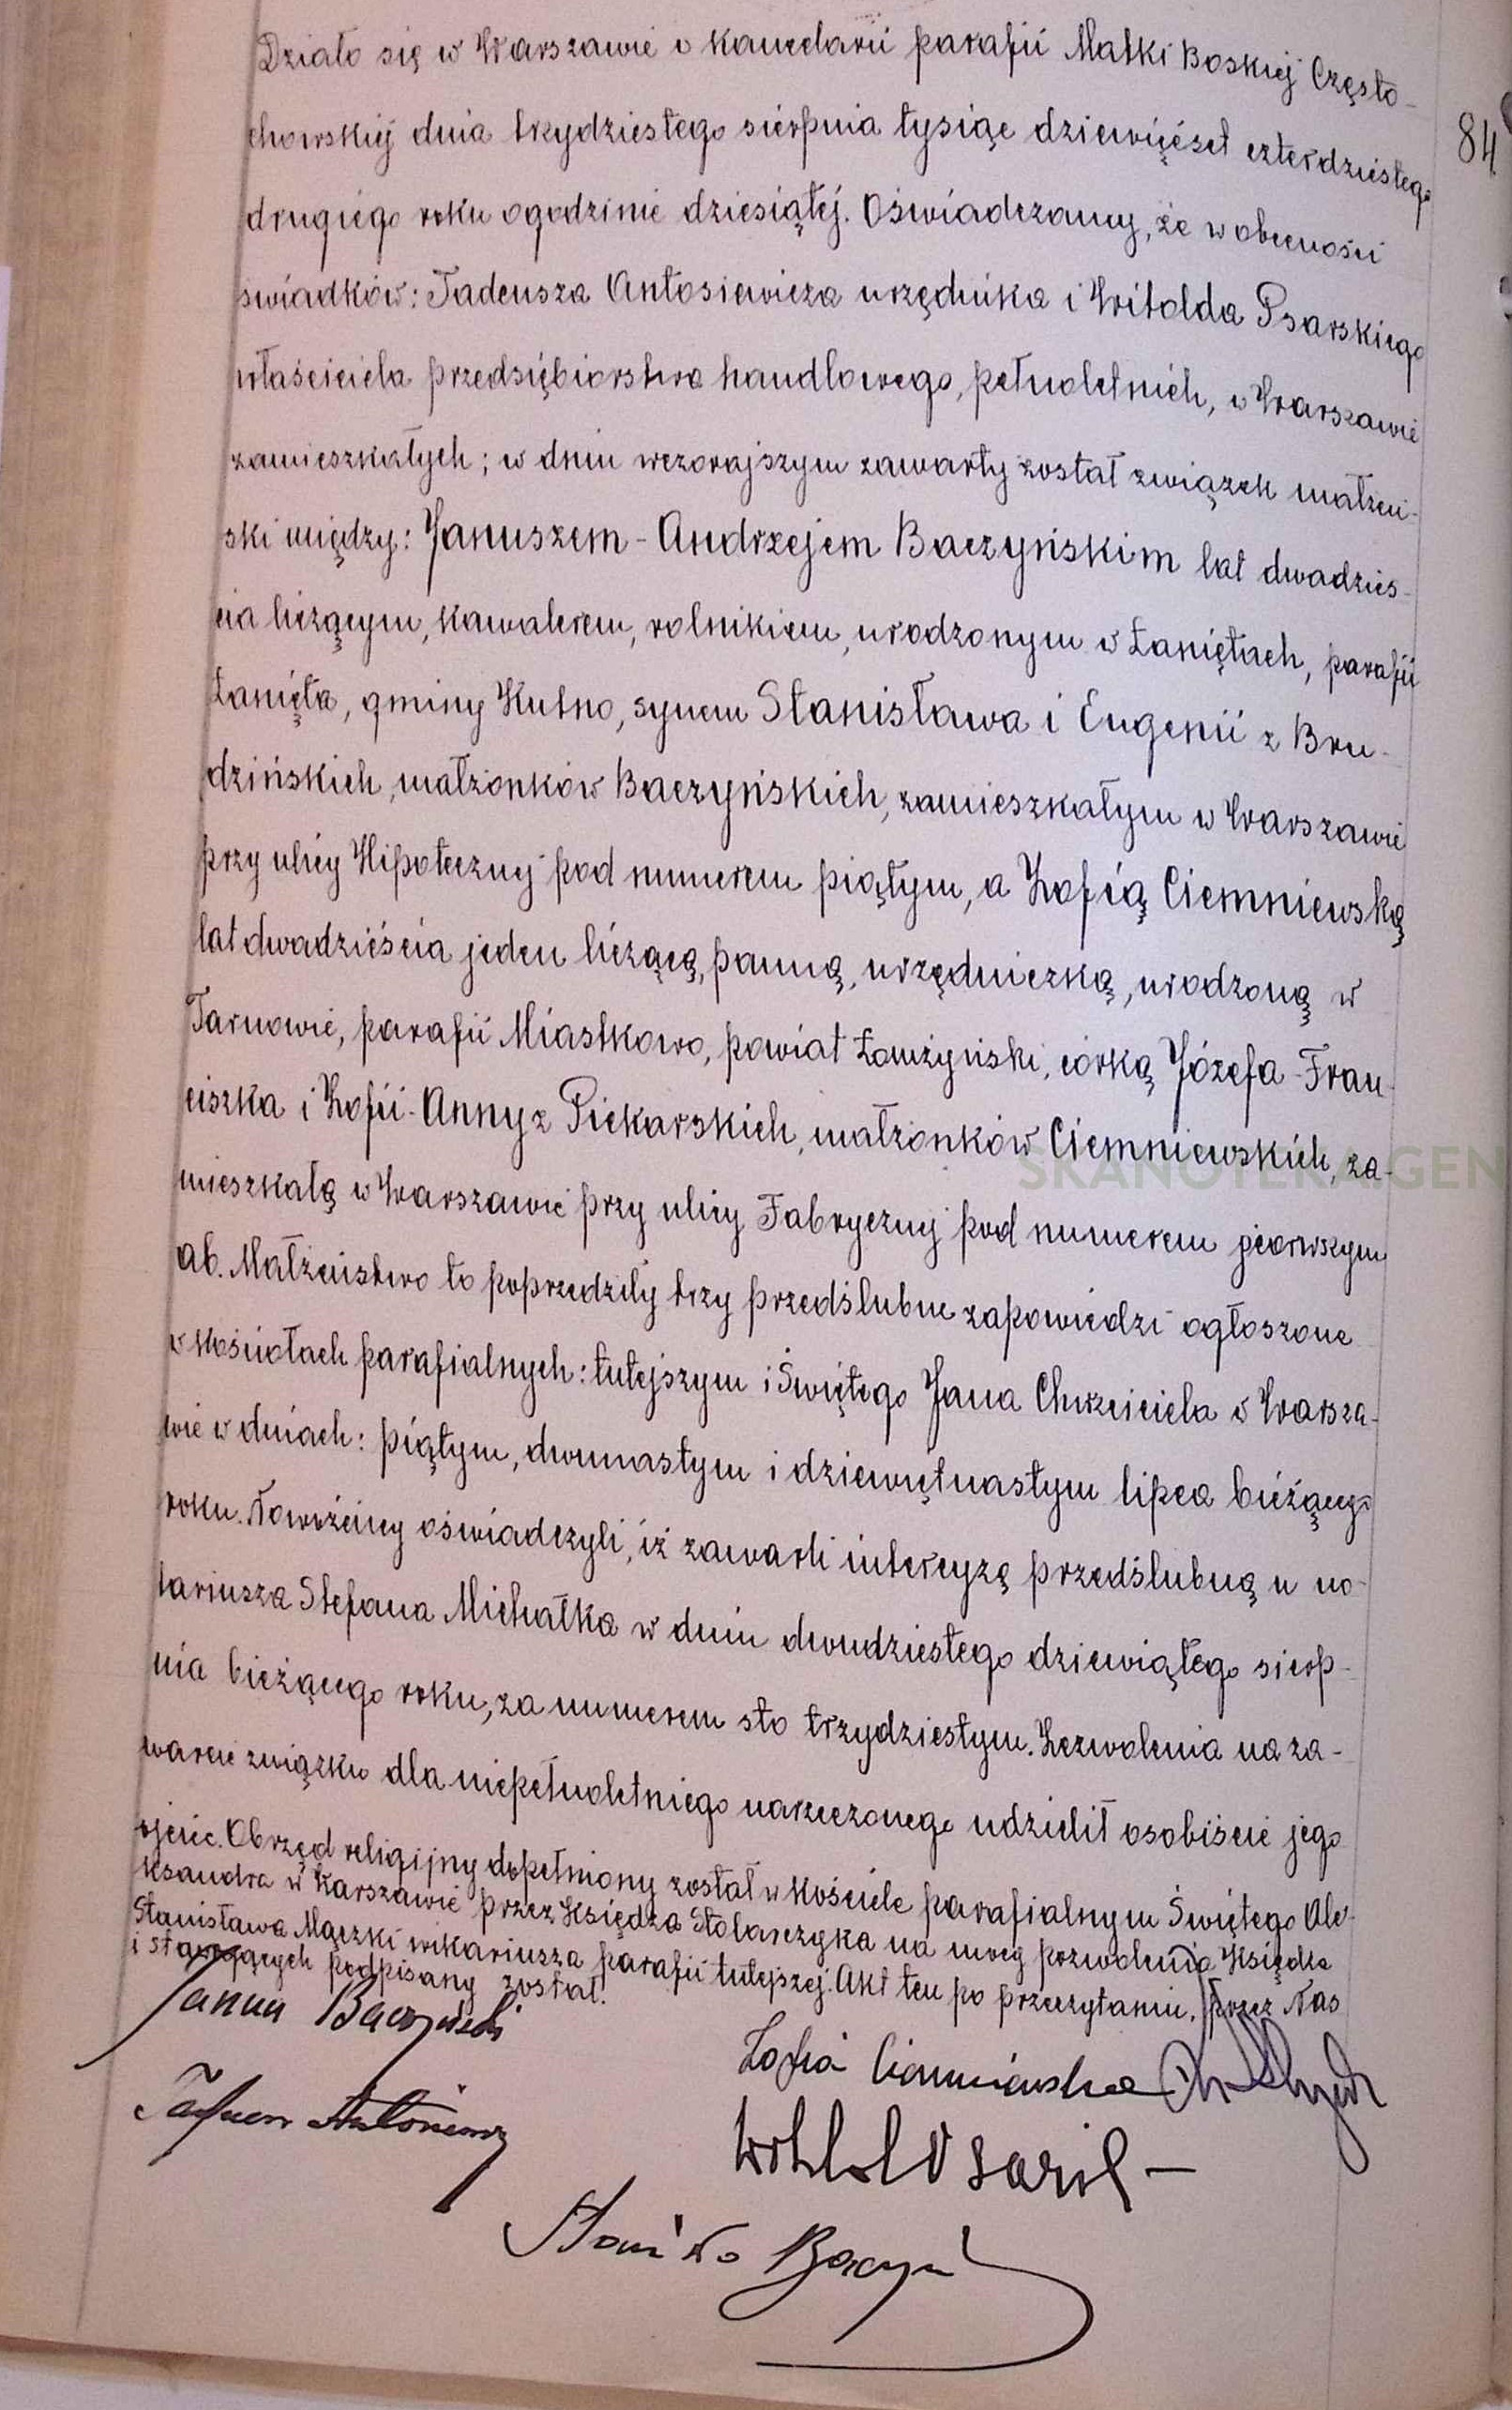 Działo się w Warszawie w kancelarii parafii Matki Boskiej Często-
chowskiej dnia trzydziestego sierpnia tysiąc dziewięćset czterdziestego
84
drugiego roku o godzinie dziesiątej. Oświadczamy, że w obecności
świadków: Tadeusza Antosiewicza urzędnika i Witolda Psarskiego
właściciela przedsiębiorstwa handlowego, pełnoletnich, w Warszawie
zamieszkałych; w dniu wczorajszym zawarty został związek małżeń-
ski między: Januszem-Andrzejem Baczyńskim lat dwadzieś-
cia liczącym, kawalerem, rolnikiem, urodzonym w Łaniętach, parafii
Łanięta, gminy Kutno, synem Stanisława i Eugenii z Bru-
dzińskich, małżonków Baczyńskich, zamieszkałym w Warszawie
przy ulicy Hipotecznej pod numerem piątym, a Zofią Ciemniewską
lat dwadzieścia jeden liczącą, panną, urzędniczką, urodzoną w
Tarnowie, parafii Miastkowo, powiat Łomżyński, córką Józefa-Fran-
ciszka i Zofii-Anny z Piekarskich, małżonków Ciemniewskich, za-
SKANOTEKA.GEN
mieszkałą w Warszawie przy ulicy Fabrycznej pod numerem pierwszym
ab. Małżeństwo to poprzedziły trzy przedślubne zapowiedzi ogłoszone
w kościołach parafialnych: tutejszym i Świętego Jana Chrzciciela w Warsza-
wie w dniach: piątym, dwunastym i dziewiętnastym lipca bieżącego
roku. Nowożeńcy oświadczyli, iż zawarli intercyzę przedślubną u no-
tariusza Stefana Michałka w dniu dwudziestego dziewiątego sierp-
nia bieżącego roku, za numerem sto trzydziestym. Zezwolenia na za-
warcie związku dla niepełnoletniego narzeczonego udzielił osobiście jego
ojciec. Obrzęd religijny dopełniony został w kościele parafialnym Świętego Ale-
ksandra w Warszawie przez Księdza Stolarczyka na mocy pozwolenia Księdza
Stanisława Mączki wikariusza parafii tutejszej. Akt ten po przeczytaniu, przez Nas
i stawających podpisany został.
Janusz Baczyński
Zofia Ciemniewska
Tadeusz Antosiewicz
Witold Psarski
Stanisław Baczyński